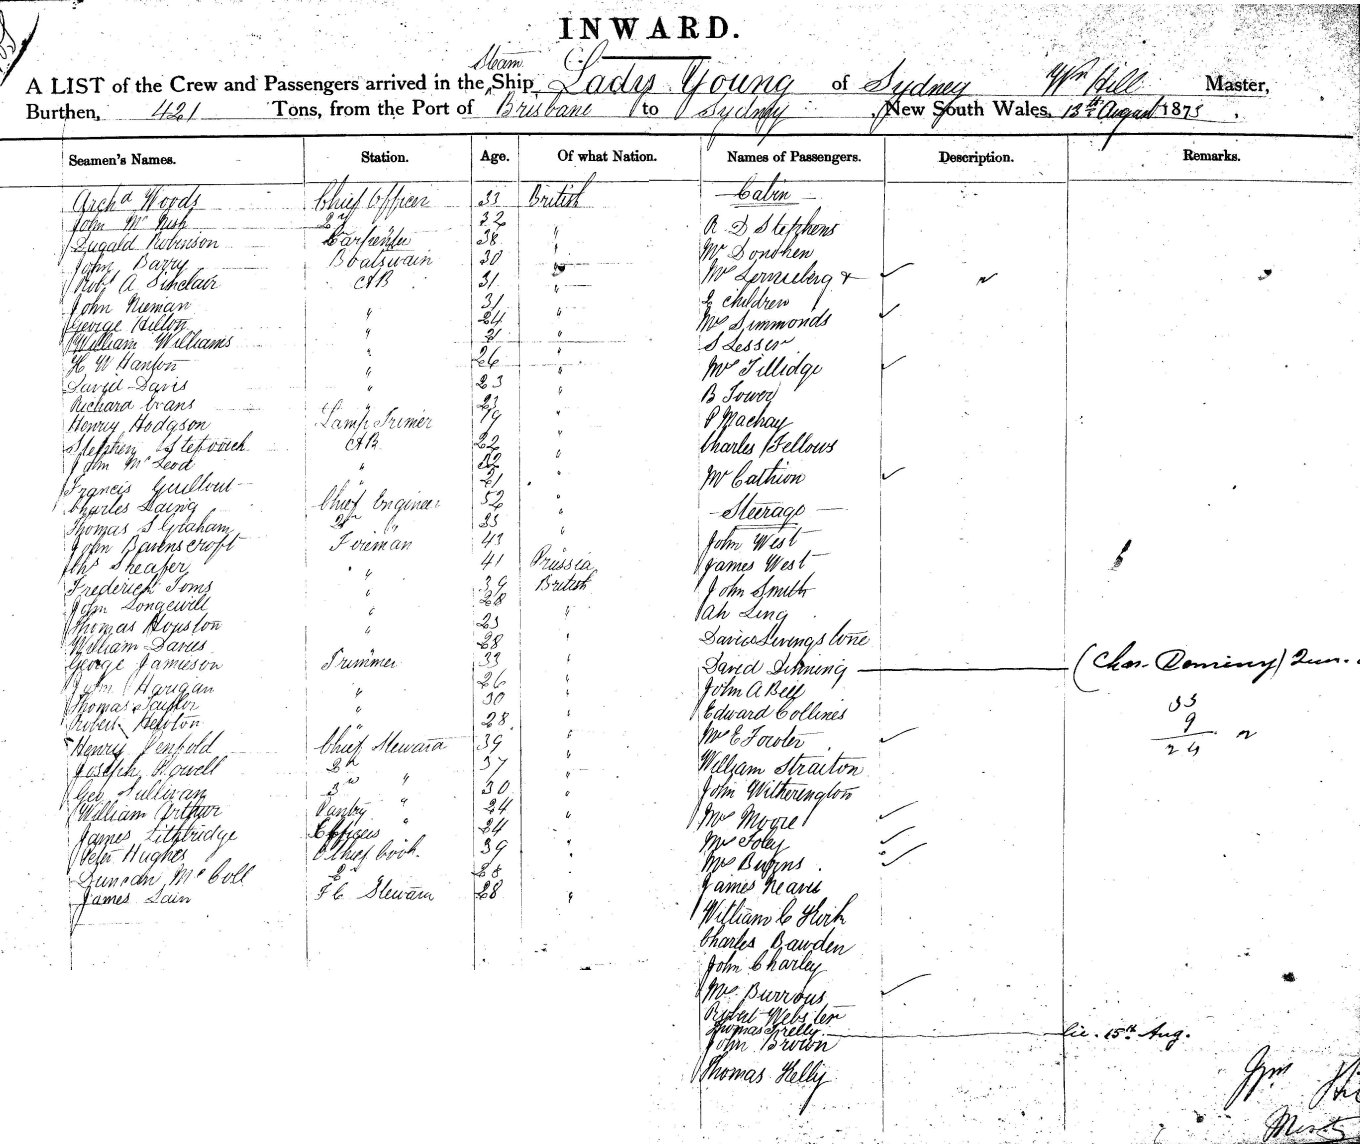 INWARD.
Steam
A LIST of the Crew and Passengers arrived in the Ship, Lady Young of Sydney Wm Hill Master,
Burthen, 421 Tons, from the Port of Brisbane to Sydney, New South Wales, 13th August 1875.
Seamen's Names. Station. Age. Of what Nation. Names of Passengers. Description. Remarks.
Archd Woods Chief Officer 33 British Cabin
John Mc Nish 2nd " 32 " R D Stephens
Dugald Robinson Carpenter 38 " Mr Donohen
John Barry Boatswain 30 "
Robt A Sinclair AB 31 " Mrs &
John Nieman " 31 " 2 children
George Hilton " 24 " Mrs Simmonds
William Williams " 21 " S Lesser
H W Hanton " 26 " Mrs Tillidge
Davis " 23 " B Tower
Richard Evans " 23 "
Henry Hodgson Lamp Trimer 19 " P Mackay
Stephen AB 22 " Charles Fellows
John Mc Leod " "
Francis Guillout " 21 " Mr Cathion
Charles Laing Chief Engineer 52 " Steerage
Thomas S Graham 2nd " "
John Ravenscroft Foreman 43 " John West
Sheafer " 41 Prussia James West
Frederick Toms " 39 British John Smith
John Longewill " 28 " Ah Ling
Thomas Houston " 23 "
William Davies " 28 " David Livingstone
George Jamieson Trimmer 33 " David Dinning (Chas. Deminy)
John Harigan " 26 " John A Bell
Thomas Taylor " 30 " Edward Collines 33
Robert Newton " 28 " 9
Henry Penfold Chief Steward 39 " Mrs E Fowler 24
Joseph Powell 2nd " 37 " William Straiton
Geo Sullivan 3rd " 30 " John Witherington
William Arthur Pantry " 24 " Mrs Moore
James Lithbridge Officers " 24 " Mrs Foley
Peter Hughes Chief Cook 39 " Mrs Burns
Duncan Mc Coll 2nd 28 " James Neaves
James Lain F C Steward 28 "
William C Kirk
Charles Bawden
John Charley
Mrs Burrows
Robert Webster
Thomas 15th Aug.
John Brown
Thomas Kelly
Wm